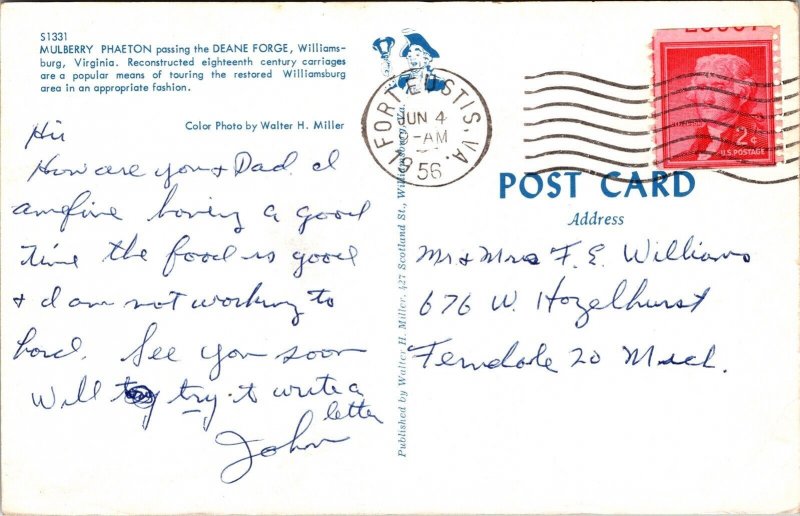 S1331
MULBERRY PHAETON passing the DEANE FORGE, Williams-
burg, Virginia. Reconstructed eighteenth century carriages
are a popular means of touring the restored Williamsburg
area in an appropriate fashion.
Color Photo by Walter H. Miller
Hi
How are you & Dad. I
am fine having a good
time the food is good
& I am not working to
hard. See you soon
Will try to write a
letter
John
Published by Walter H. Miller, 427 Scotland St., Williamsburg, Va.
FORT EUSTIS, VA.
JUN 4
-AM
1956
2¢
U.S. POSTAGE
POST CARD
Address
Mr & Mrs F. E. Williams
676 W. Hazelhurst
Ferndale 20 Mich.